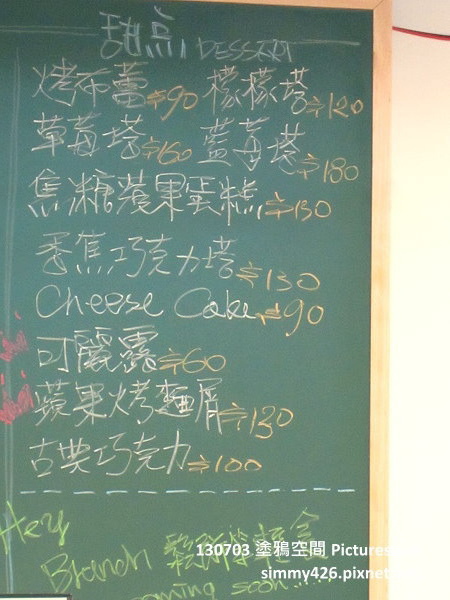 甜点 DESSERT
烤布蕾 $90 檬檬塔 $120
草莓塔 $160 藍莓塔 $180
焦糖蘋果蛋糕 $130
香焦巧克力塔 $130
Cheese Cake $90
可麗露 $60
蘋果烤麵屑 $130
古典巧克力 $100
Hey
Brunch 鬆餅
coming soon....
130703 塗鴉空間 Pictures
simmy426.pixnet